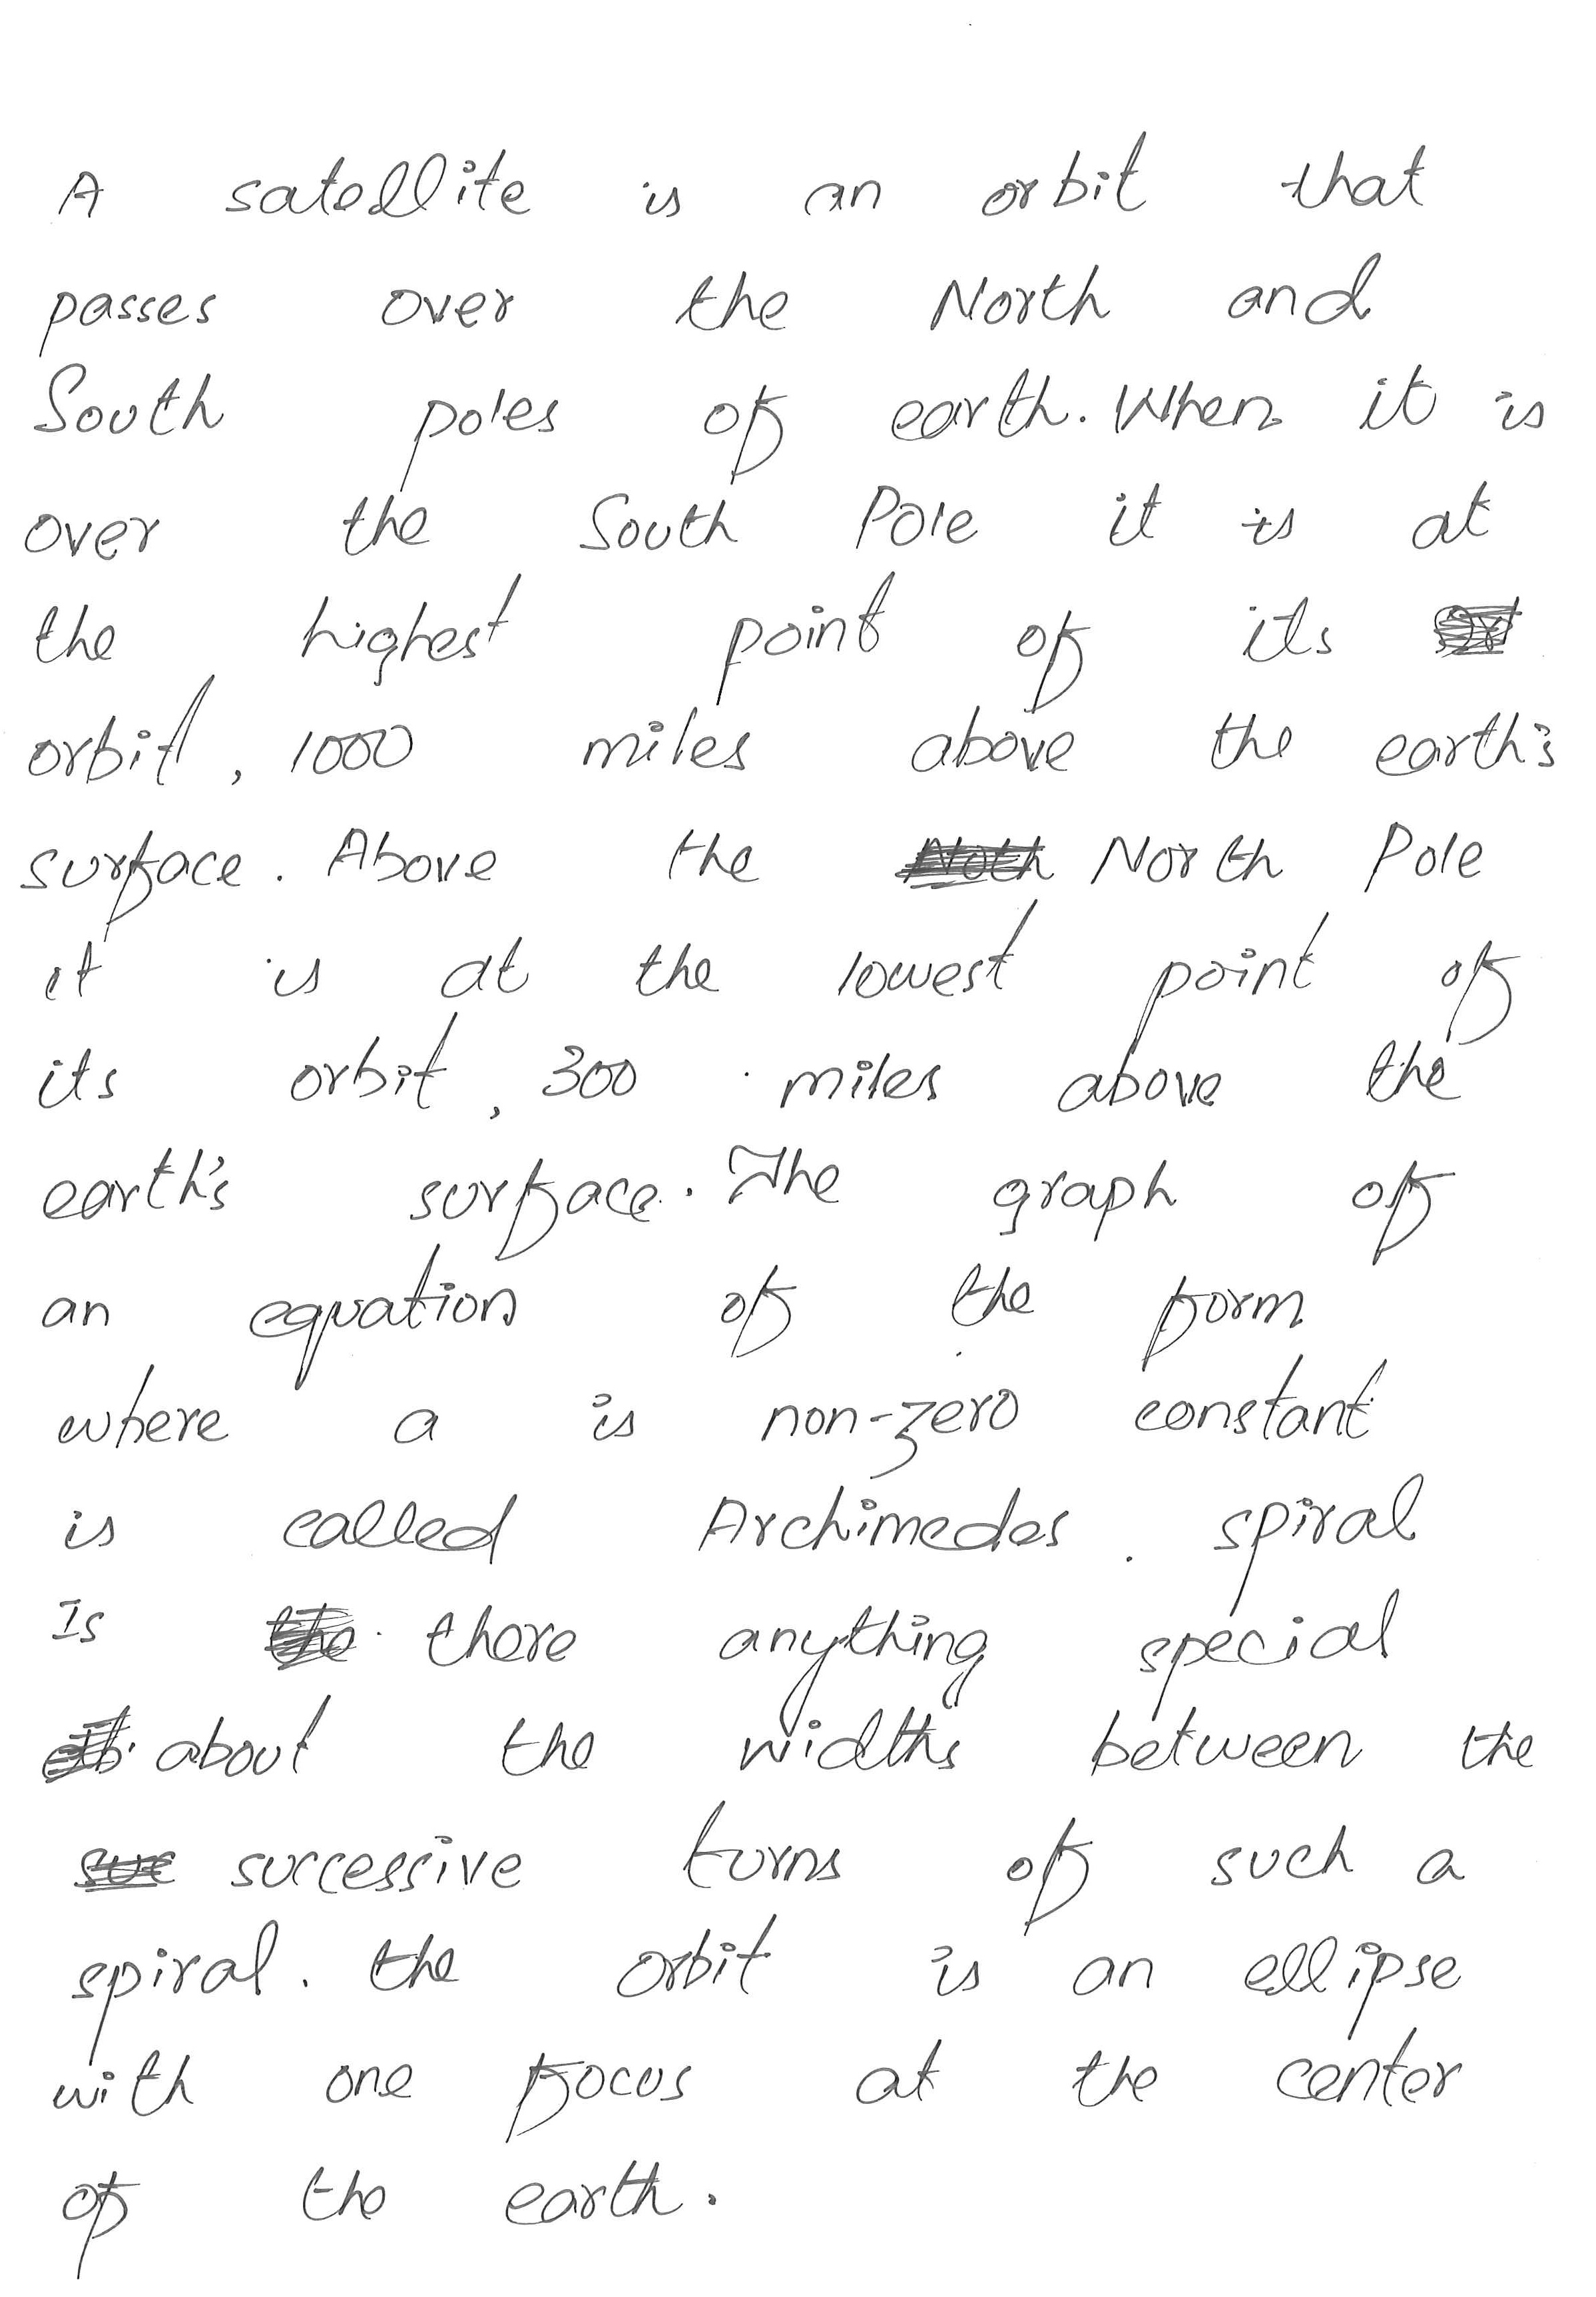 A satellite is an orbit that
passes over the North and
South poles of earth. When it is
over the South Pole it is at
the highest point of its
orbit, 1000 miles above the earth's
surface. Above the North Pole
it is at the lowest point of
its orbit, 300 miles above the
earth's surface. The graph of
an equation of the form
where a is non-zero constant
is called Archimedes. spiral
Is there anything special
about the widths between the
successive turns of such a
spiral. the orbit is an ellipse
with one focus at the center
of the earth.